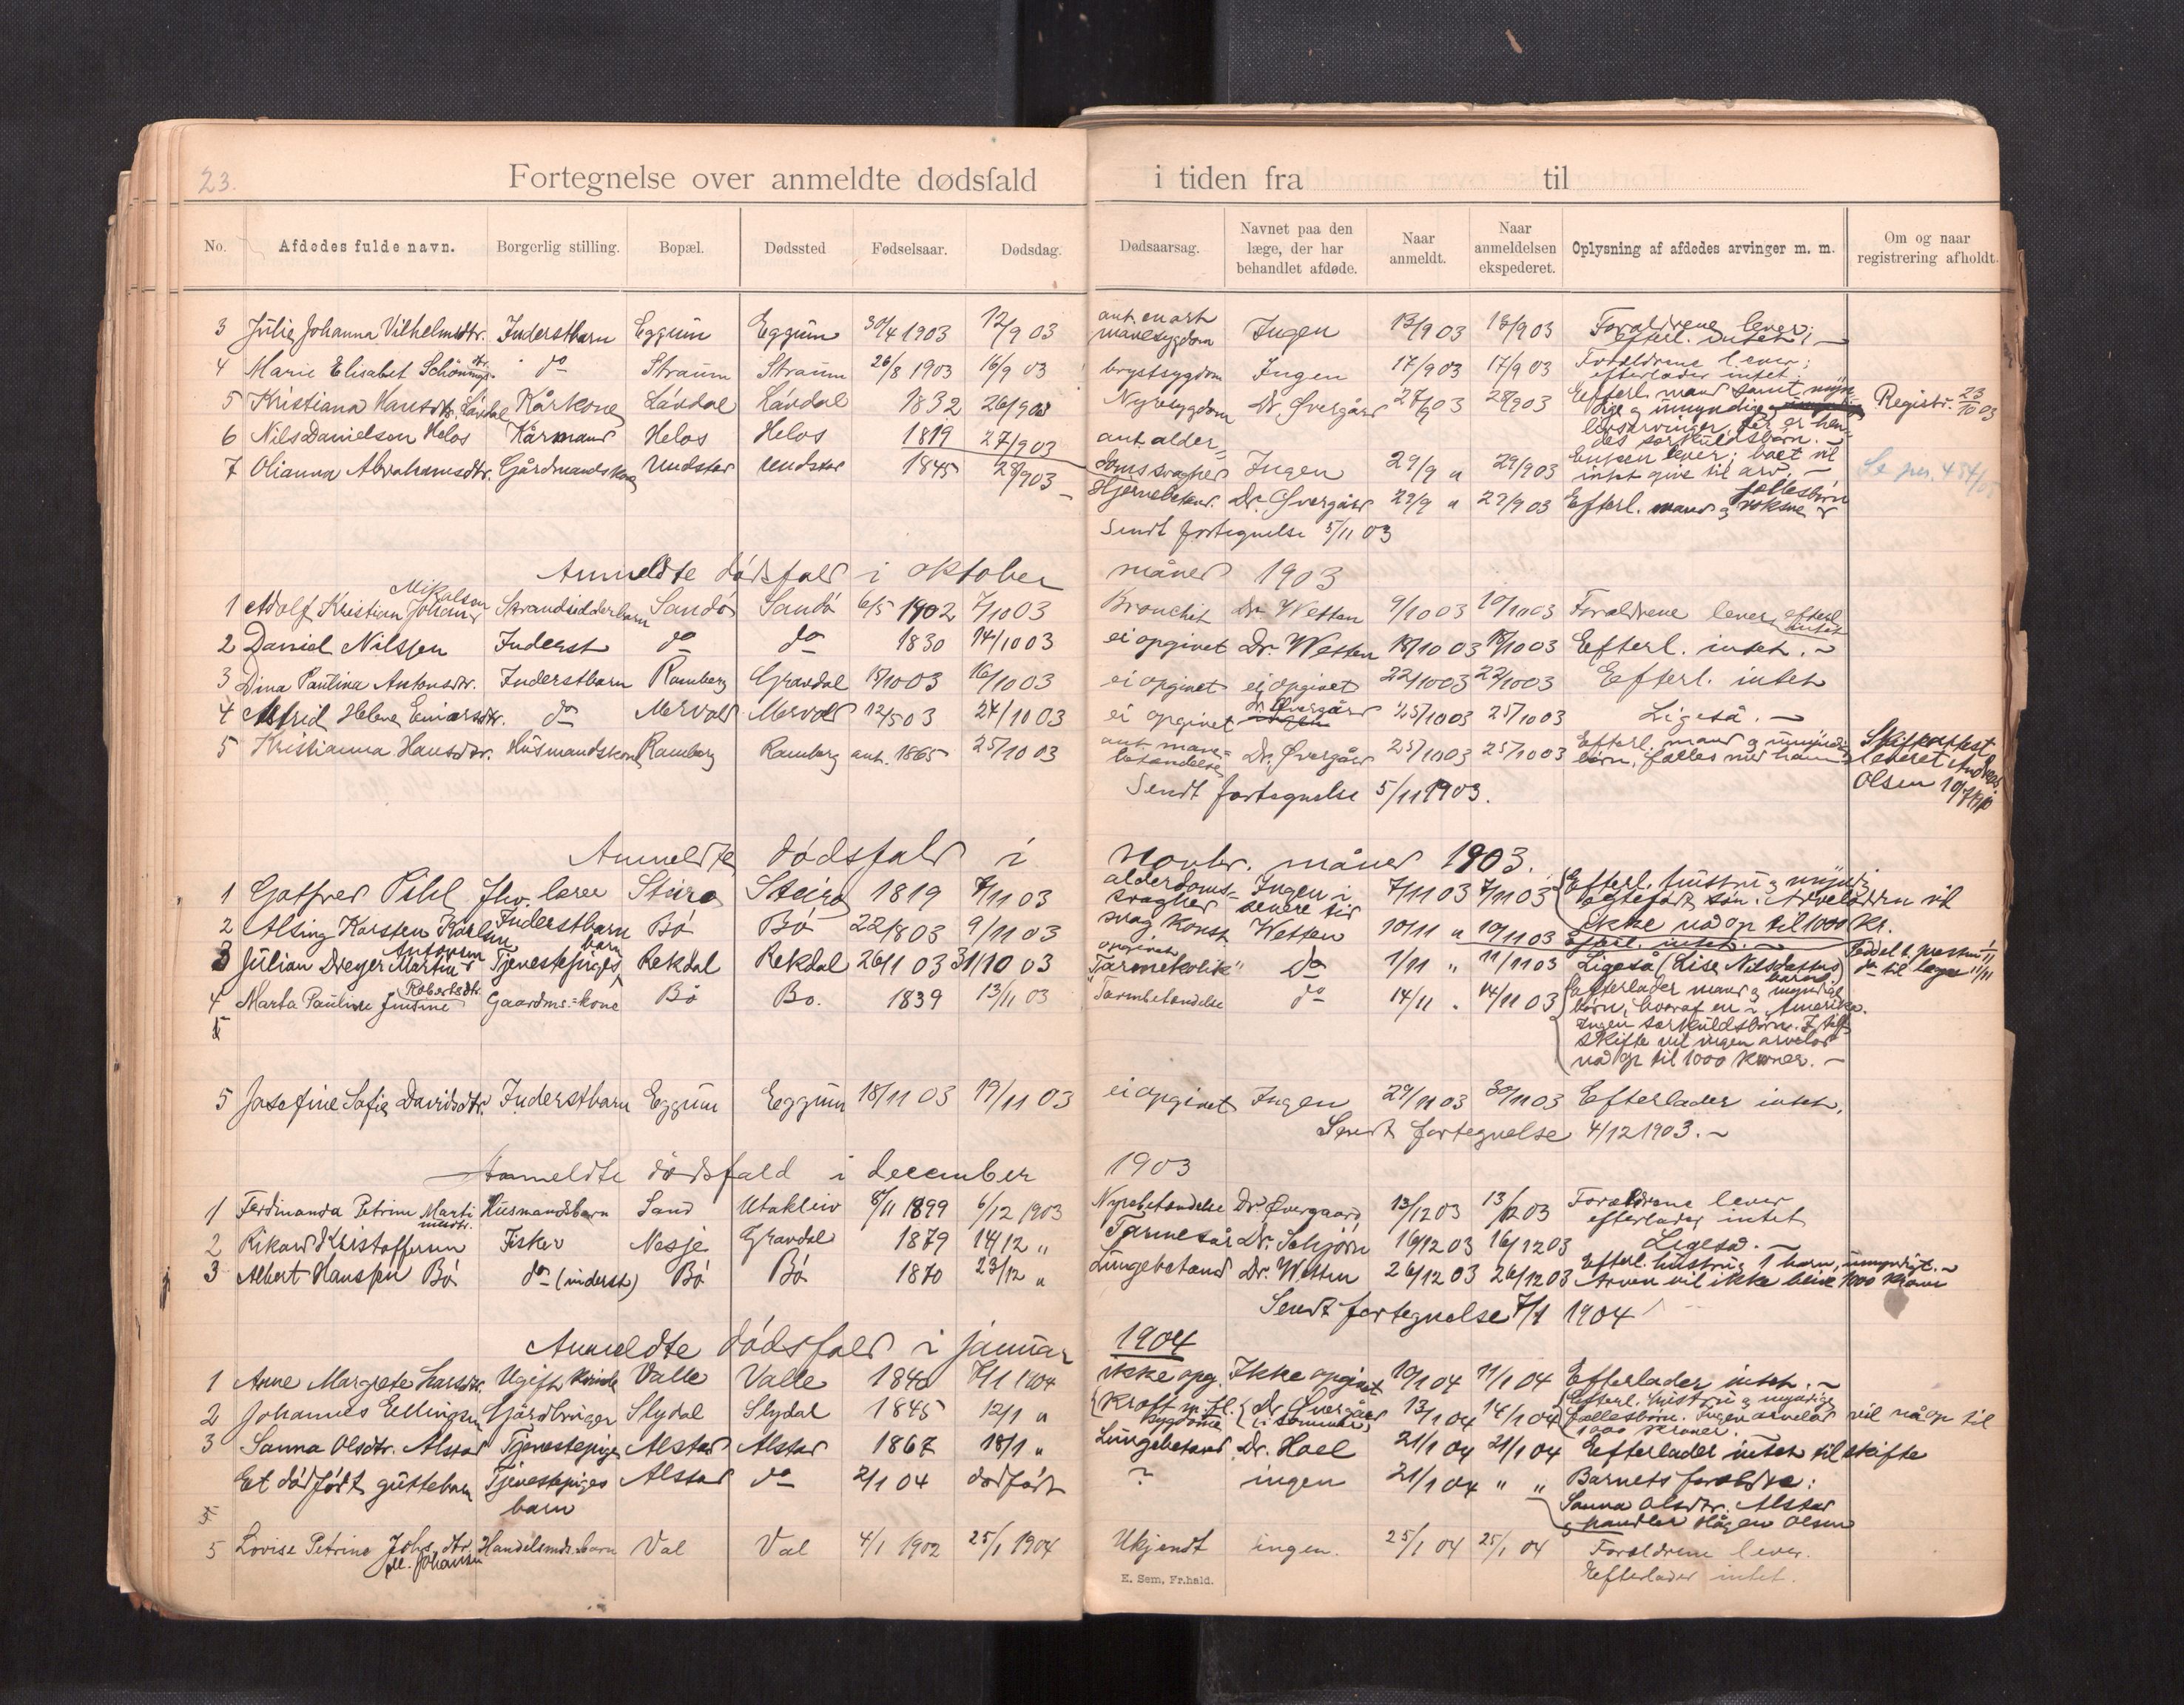 23.
Fortegnelse over anmeldte dødsfald i tiden fra til
No. Afdødes fulde navn. Borgerlig stilling. Bopæl. Dødssted Fødselsaar. Dødsdag. Dødsaarsag. Navnet paa den læge, der har behandlet afdøde. Naar anmeldt. Naar anmeldelsen ekspederet. Oplysning af afdødes arvinger m. m. Om og naar registrering afholdt.
3 Julie Johanna Vilhelmsdtr. Inderstbarn Eggum Eggum 30/4 1903 12/9 03 ant. en art mavesygdom Ingen 13/9 03 13/9 03 Forældrene lever; efterl. intet; —
4 Marie Elisabet Schønningsdtr. do Straum Straum 26/8 1903 16/9 03 brystsygdom Ingen 17/9 03 17/9 03 Forældrene lever; efterlader intet.
5 Kristiana Hansdtr. Lavdal Kårkone Lavdal Lavdal 1832 26/9 03 Nyresygdom Dr. Øvergård 28/9 03 28/9 03 Efterl. mand samt myndige og umyndige livsarvinger, der er hendes særkuldsbørn. — Registr. 23/10 03
6 Nils Danielsen Helos Kårmand Helos Helos 1819 27/9 03 ant. alderdomssvaghed Ingen 29/9 " 29/9 03 Enken lever; boet vil intet give til arv. —
7 Olianna Abrahamsdtr. Gårdmandskone Undstad Undstad 1845 28/9 03 — Hjernebetænd. Dr. Øvergård 29/9 " 29/9 03 Efterl. mand og voksne fællesbørn
Sendt fortegnelse 5/11 03
Anmeldte dødsfald i oktober måned 1903
1 Adolf Kristian Johan Mikalsen Strandsidderbarn Sandø Sandø 6/5 1902 7/10 03 Bronchit Dr. Wetten 9/10 03 10/10 03 Forældrene lever, efterl. intet
2 Daniel Nilssen Inderst do do 1830 14/10 03 ei opgivet Dr. Wetten 18/10 03 18/10 03 Efterl. intet. —
3 Dina Paulina Antonsdtr. Inderstbarn Ramberg Gravdal 15/10 03 16/10 03 ei opgivet ei opgivet 22/10 03 22/10 03 Efterl. intet
4 Astrid Helene Einarsdtr. do Mervold Mervold 12/5 03 24/10 03 ei opgivet Dr. Øvergård 25/10 03 25/10 03 Ligeså. —
5 Kristianna Hansdtr. Husmandskone Ramberg Ramberg ant. 1865 25/10 03 ant. mavebetændelse Dr. Øvergård 25/10 03 25/10 03 Efterl. mand og umyndige børn, fælles med ham — Skifteattest leveret Andreas Olsen
Sendt fortegnelse 5/11 1903.
Anmeldte dødsfald i Novbr. måned 1903.
1 Gotfred Pihl Fhv. lærer Steira Steira 1819 7/11 03 alderdomssvaghed Ingen i senere tid 7/11 03 7/11 03 Efterl. hustru og myndig ægtefødt søn. Arvelodden vil ikke nå op til 1000 kr.
2 Alsing Karsten Karlsen Inderstbarn Bø Bø 22/8 03 9/11 03 Wetten 10/11 " 10/11 03 Efterl. intet. —
3 Julian Dreyer Martin Antonsen Tjenestepiges barn Rekdal Rekdal 26/1 03 31/10 03 opgivet "Tarmekolik" do 1/11 " 11/11 03 Ligeså (Lise Nilsdatters barn)
4 Marta Pauline Jensine Robertsdtr. Gaardms.=kone Bø Bø. 1839 13/11 03 Tarmbetændelse do 14/11 . 14/11 03 Efterlader mand og myndige børn, hvoraf en i Amerika. Ingen særkuldsbørn. I tilf. skifte vil ingen arvelod nå op til 1000 kroner. —
5 Josefine Sofie Davidsdtr. Inderstbarn Eggum Eggum 18/11 03 19/11 03 ei opgivet Ingen 29/11 03 30/11 03 Efterlader intet.
Sendt fortegnelse 4/12 1903. —
Anmeldte dødsfald i december 1903
1 Ferdinanda Petrine Martinusdtr. Husmandsbarn Sand Utakleiv 8/11 1899 6/12 1903 Nyrebetændelse Dr. Øvergaard 13/12 03 13/12 03 Forældrene lever efterlader intet
2 Rikard Kristoffersen Fisker Nesje Gravdal 1879 14/12 " Tarmesår Dr. Schjørn 16/12 03 16/12 03 Ligeså. —
3 Albert Hanssen Bø do (inderst) Bø Bø 1870 23/12 " Lungebetænd Dr. Wetten 26/12 03 26/12 03 Efterl. hustru og 1 barn, umyndigt. — Arven vil ikke blive 1000 kroner
Sendt fortegnelse 7/1 1904
Anmeldte dødsfald i januar 1904
1 Anne Margrete Larsdtr. Ugift kvinde Valle Valle 1840 7/1 1904 ikke opg. Ikke opgivet 10/1 04 11/1 04 Efterlader intet. —
2 Johannes Ellingsen Gårdbruger Slydal Slydal 1845 12/1 " Kræft m. fl. sygdomme Dr. Øvergård i sommer 13/1 04 14/1 04 Efterl. hustru og myndige fællesbørn. Ingen arvelod vil nå op til 1000 kroner.
3 Sanna Olsdtr. Alstad Tjenestepige Alstad Alstad 1867 18/1 " Lungebetænd Dr. Hoel 21/1 04 21/1 04 Efterlader intet til skifte
Et dødfødt guttebarn Tjenestepiges barn Alstad do 2/1 04 dødfødt ? ingen 21/1 04 " " Barnets forældre: Sanna Olsdtr. Alstad og handler Hågen Olsen
5 Lovise Petrine Johs. dtr. ell. Johansen Handelsmds.barn Val Val 4/1 1902 25/1 1904 Ukjendt ingen. 25/1 04 25/1 04 Forældrene lever. Efterlader intet.
E. Sem, Fr.hald.